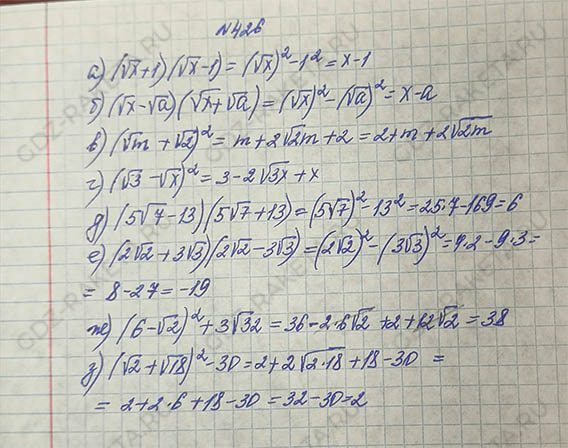 №426
а) (√x+1)(√x-1)=(√x)²-1²=x-1
б) (√x-√a)(√x+√a)=(√x)²-(√a)²=x-a
в) (√m+√2)²=m+2√2m+2=2+m+2√2m
г) (√3-√x)²=3-2√3x+x
д) (5√7-13)(5√7+13)=(5√7)²-13²=25·7-169=6
е) (2√2+3√3)(2√2-3√3)=(2√2)²-(3√3)²=4·2-9·3=
=8-27=-19
ж) (6-√2)²+3√32=36-2·6√2+2+12√2=38
з) (√2+√18)²-30=2+2√2·18+18-30=
=2+2·6+18-30=32-30=2
GDZ-RAKETA.RU